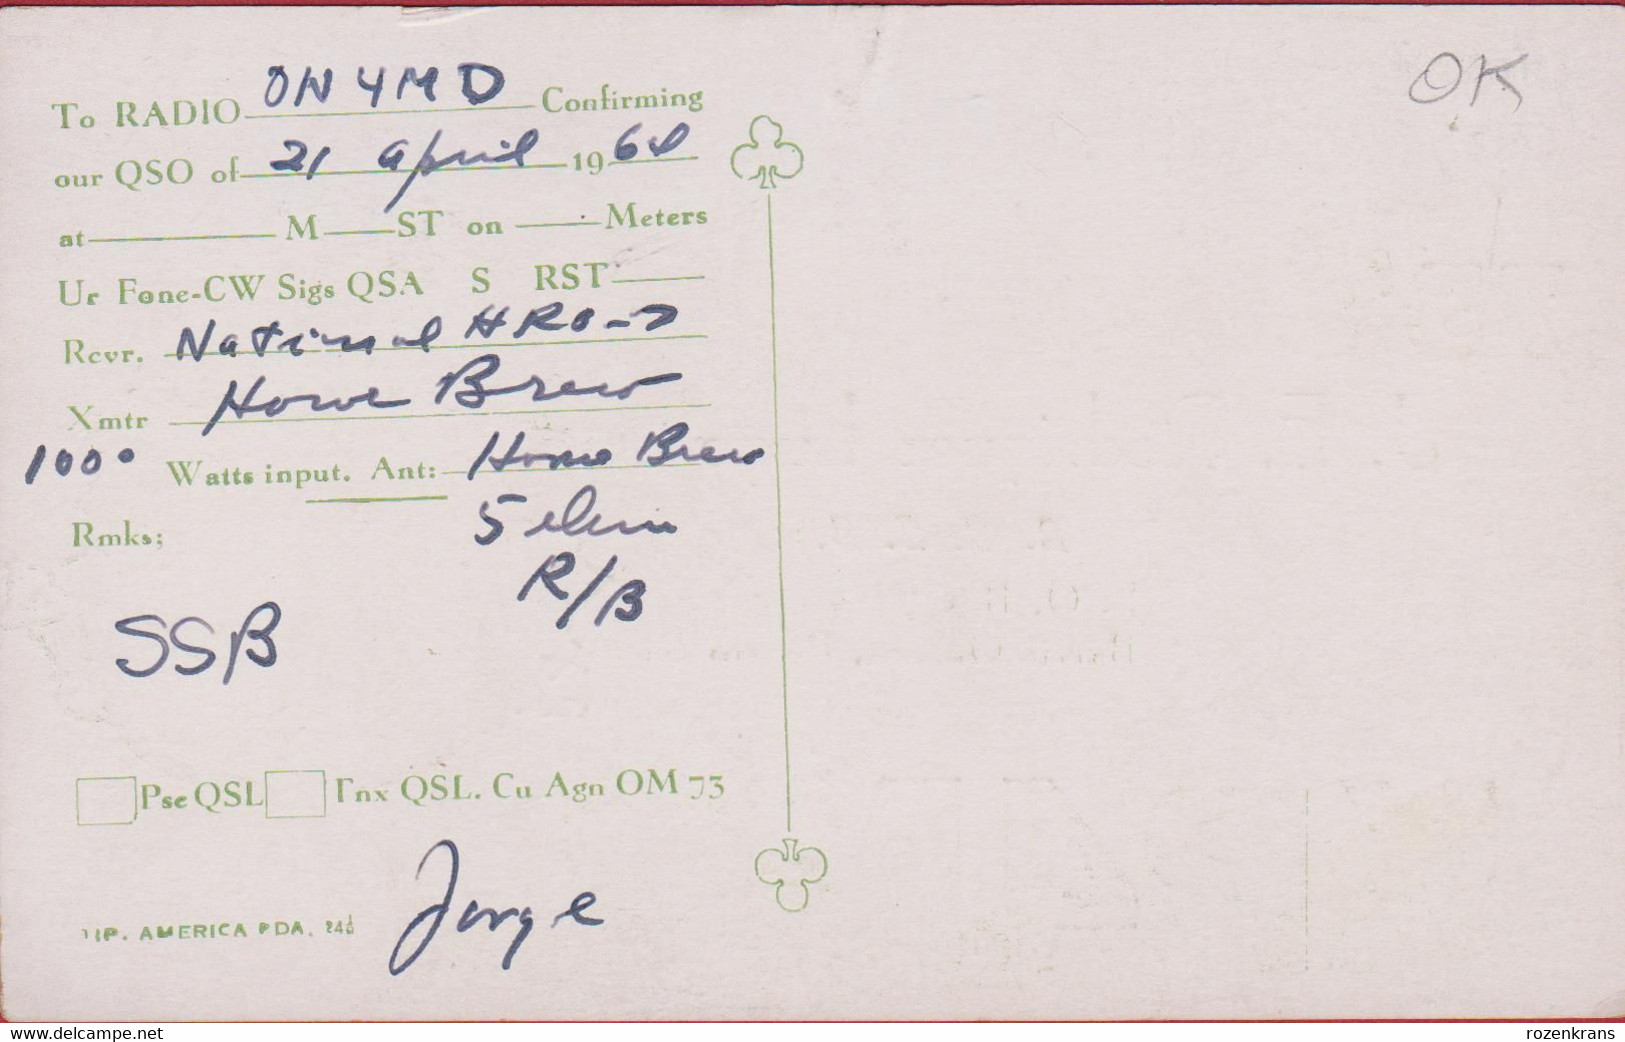 OK
To RADIO ON4MD Confirming
our QSO of 21 april 1964
at M ST on Meters
Ur Fone-CW Sigs QSA S RST
Rcvr. National HRO-7
Xmtr Home Brew
1000 Watts input. Ant: Home Brew
Rmks; 5 elem
R/B
SSB
Pse QSL Tnx QSL. Cu Agn OM 73
Jorge
TIP. AMERICA PDA.
www.delcampe.net rozenkrans